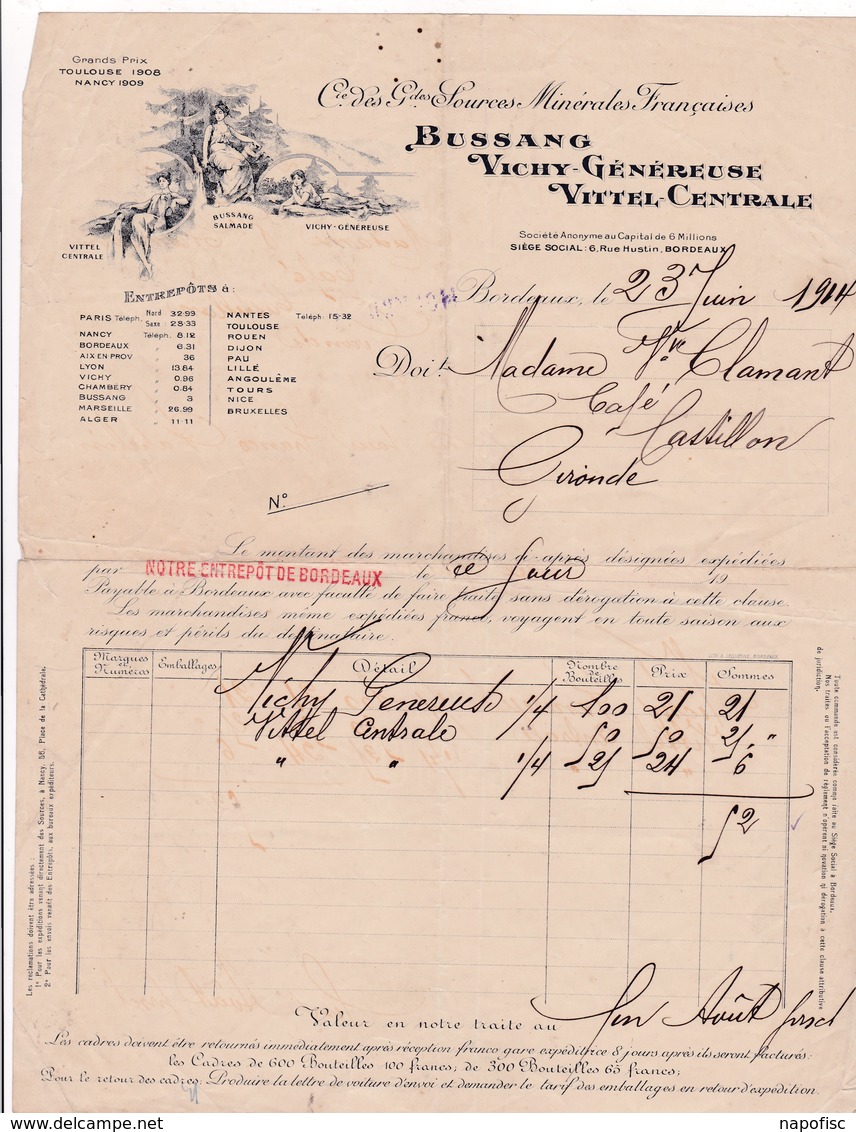 Grands Prix
TOULOUSE 1908
NANCY 1909
Cie des Gdes Sources Minérales Françaises
BUSSANG
VICHY-GÉNÉREUSE
VITTEL-CENTRALE
BUSSANG
SALMADE
VICHY-GÉNÉREUSE
VITTEL
CENTRALE
Société Anonyme au Capital de 6 Millions
SIÈGE SOCIAL: 6, Rue Hustin, BORDEAUX
Bordeaux, le 23 Juin 1914
ENTREPÔTS à:
PARIS Téleph. Nord 32-99
Saxe 28-33
NANCY Téleph. 8.12
BORDEAUX " 6.31
AIX EN PROV " 36
LYON " 13.84
VICHY " 0.96
CHAMBÉRY " 0.84
BUSSANG " 3
MARSEILLE " 26.99
ALGER " 11-11
NANTES Téléph. 15-32
TOULOUSE
ROUEN
DIJON
PAU
LILLÉ
ANGOULÊME
TOURS
NICE
BRUXELLES
Doit Madame Vve Clamant
Café
Castillon
Gironde
No
Le montant des marchandises ci-après désignées expédiées
par NOTRE ENTREPÔT DE BORDEAUX le ce Jour 19
Payable à Bordeaux avec faculté de faire traite sans dérogation à cette clause.
Les marchandises même expédiées franco, voyagent en toute saison aux
risques et périls du destinataire.
Marques et Numéros Emballages Détail Nombre de Bouteilles Prix Sommes
Vichy Généreuse 1/4 100 21 21
Vittel Centrale 50 50 25 "
" " 1/4 25 24 6
52
Valeur en notre traite au fin Août prch
Les cadres doivent être retournés immédiatement après réception franco gare expéditrice 8 jours après ils seront facturés:
les Cadres de 600 Bouteilles 100 francs; de 300 Bouteilles 65 francs;
Pour le retour des cadres: Produire la lettre de voiture d'envoi et demander le tarif des emballages en retour d'expédition.
Les réclamations doivent être adressées:
1° Pour les expéditions venant directement des Sources, à Nancy, 56, Place de la Cathédrale.
2° Pour les envois venant des Entrepôts, aux bureaux expéditeurs.
Toute commande est considérée comme faite au Siège Social à Bordeaux.
Nos traites ou l'acceptation de règlement n'opèrent ni novation ni dérogation à cette clause attributive
de juridiction.
napofisc